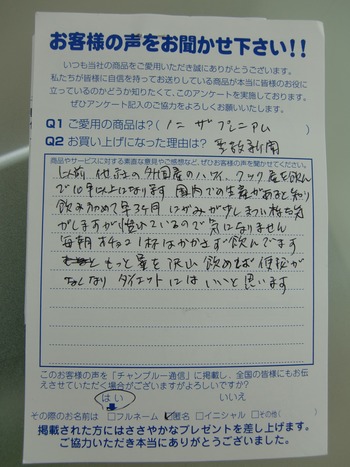 お客様の声をお聞かせ下さい!!
いつも当社の商品をご愛用いただき誠にありがとうございます。
私たちが皆様に自信を持ってお送りしている商品が本当に皆様のお役に
立っているのかどうか知りたくて、このアンケートを実施しております。
ぜひアンケート記入のご協力をよろしくお願いいたします。
Q1 ご愛用の商品は?(ノニ ザ プレミアム)
Q2 お買い上げになった理由は?
商品やサービスに対する素直な意見やご感想など、ぜひお客様の声を聞かせてください。
以前 他社の外国産の
で10年以上になります 国内での生産があると知り
飲み初めて 年3ヶ月 にがみが少しきつい様な気
がしますが 慣れているので気になりません
毎朝 おチョコ1杯はかかさず飲んでます
もっと量を沢山飲めれば 便秘が
なくなり ダイエットには いいと思います
このお客様の声を「チャンプルー通信」に掲載し、全国の皆様にもお伝
えさせていただく場合がございますがよろしいですか?
はい いいえ
その際のお名前は □フルネーム ☑匿名 □イニシャル □その他( )
掲載された方にはささやかなプレゼントを差し上げます。
ご協力いただき本当にありがとうございました。